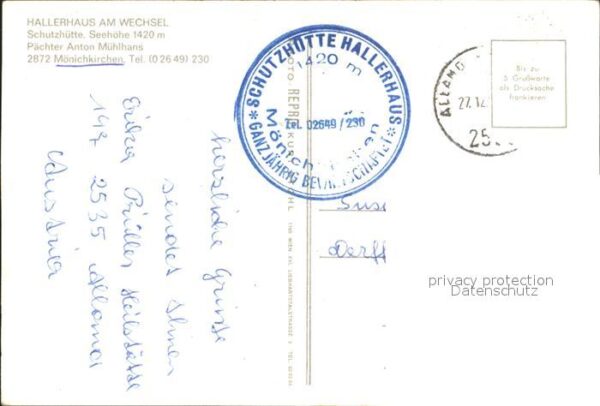 HALLERHAUS AM WECHSEL
Schutzhütte. Seehöhe 1420 m
Pächter Anton Mühlhans
2872 Mönichkirchen, Tel. (0 26 49) 230
SCHUTZHÜTTE HALLERHAUS
1420 m
Tel. 02649/230
Mönichkirchen
* GANZJÄHRIG BEWIRTSCHAFTET *
ALLAND
27.12
25
Bis zu
5 Grußworte
als Drucksache
frankieren
herzliche Grüsse
sendet Ihnen
Erika
Heilstätte
2535 Alland
Austria
privacy protection
Datenschutz